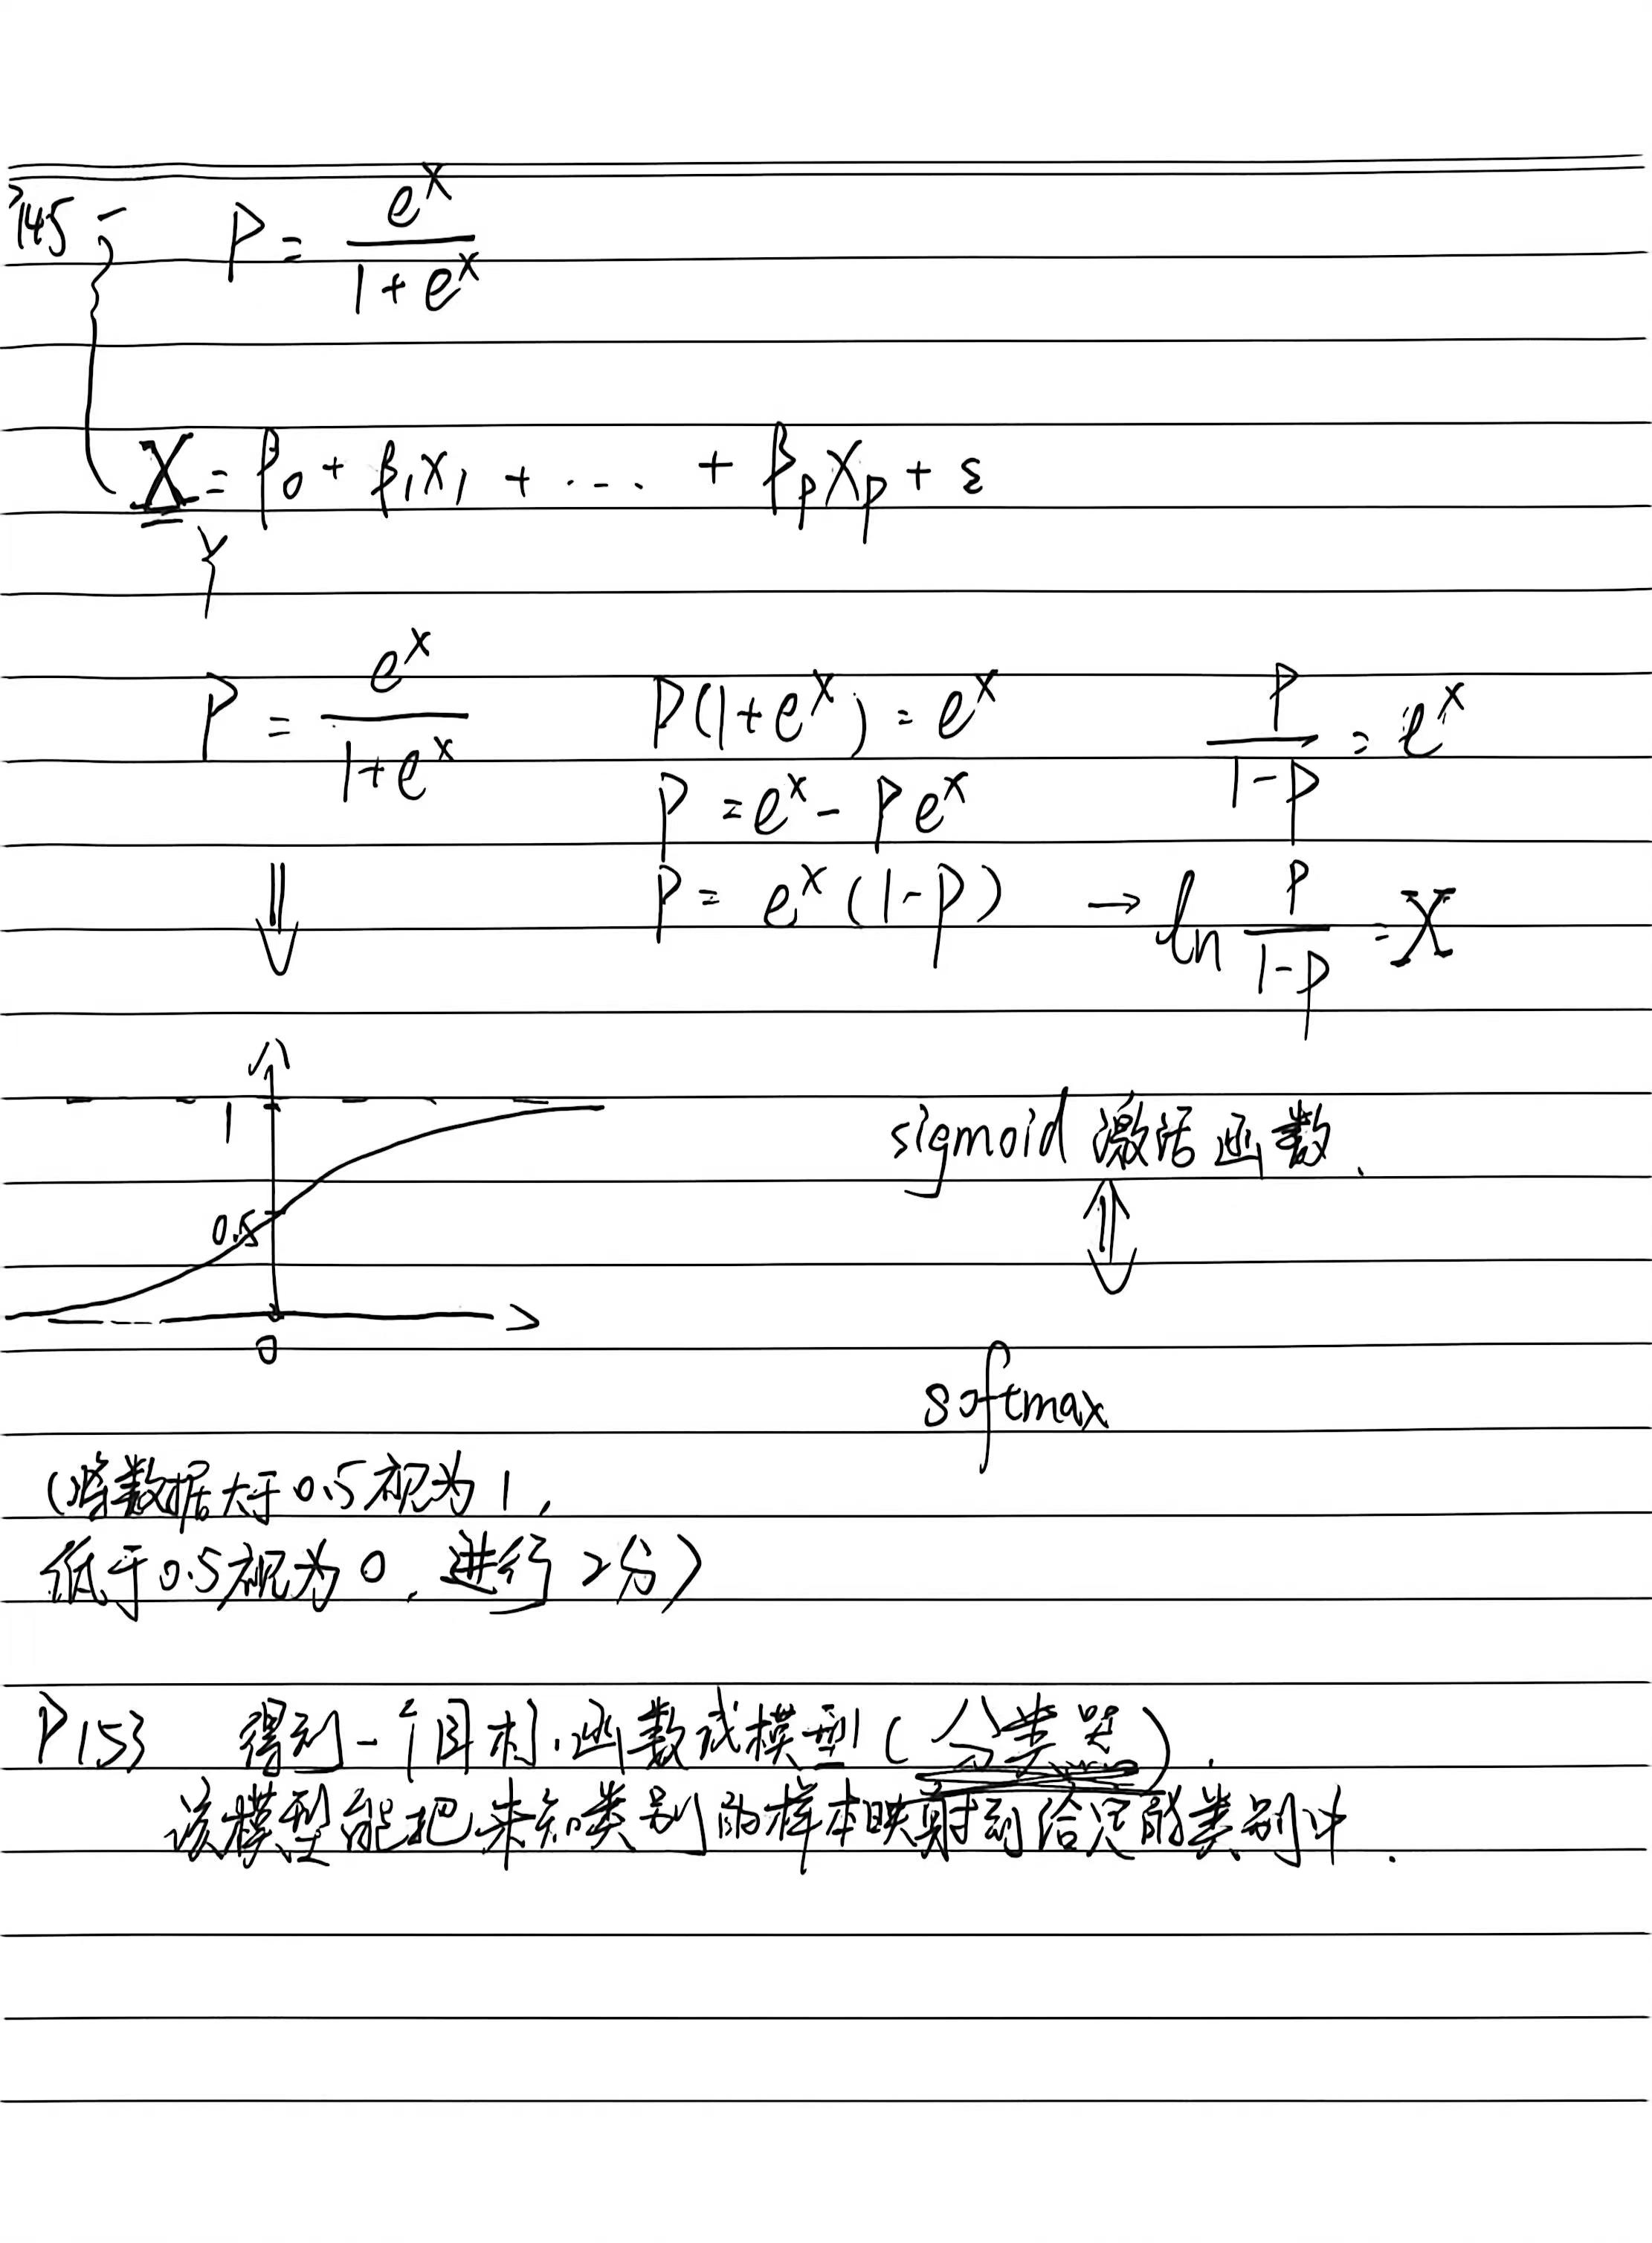 P145 P = e^x / (1 + e^x)
X = β0 + β1x1 + ... + βpXp + ε
Y
P = e^x / (1+e^x)
P(1+e^x) = e^x
P = e^x - Pe^x
P = e^x (1-P)
P / (1-P) = e^x
→ ln P / (1-P) = X
1
0.5
0
sigmoid 激活函数.
softmax
(将数据大于0.5视为1,
低于0.5视为0, 进行2分)
P153 得到一个目标函数或模型(分类器).
该模型能把未知类别的样本映射到给定的类别中.